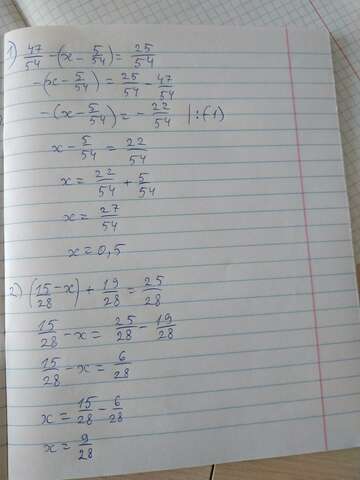 1) 47/54 - (x - 5/54) = 25/54
-(x - 5/54) = 25/54 - 47/54
-(x - 5/54) = - 22/54 |:(-1)
x - 5/54 = 22/54
x = 22/54 + 5/54
x = 27/54
x = 0,5
2) (15/28 - x) + 19/28 = 25/28
15/28 - x = 25/28 - 19/28
15/28 - x = 6/28
x = 15/28 - 6/28
x = 9/28